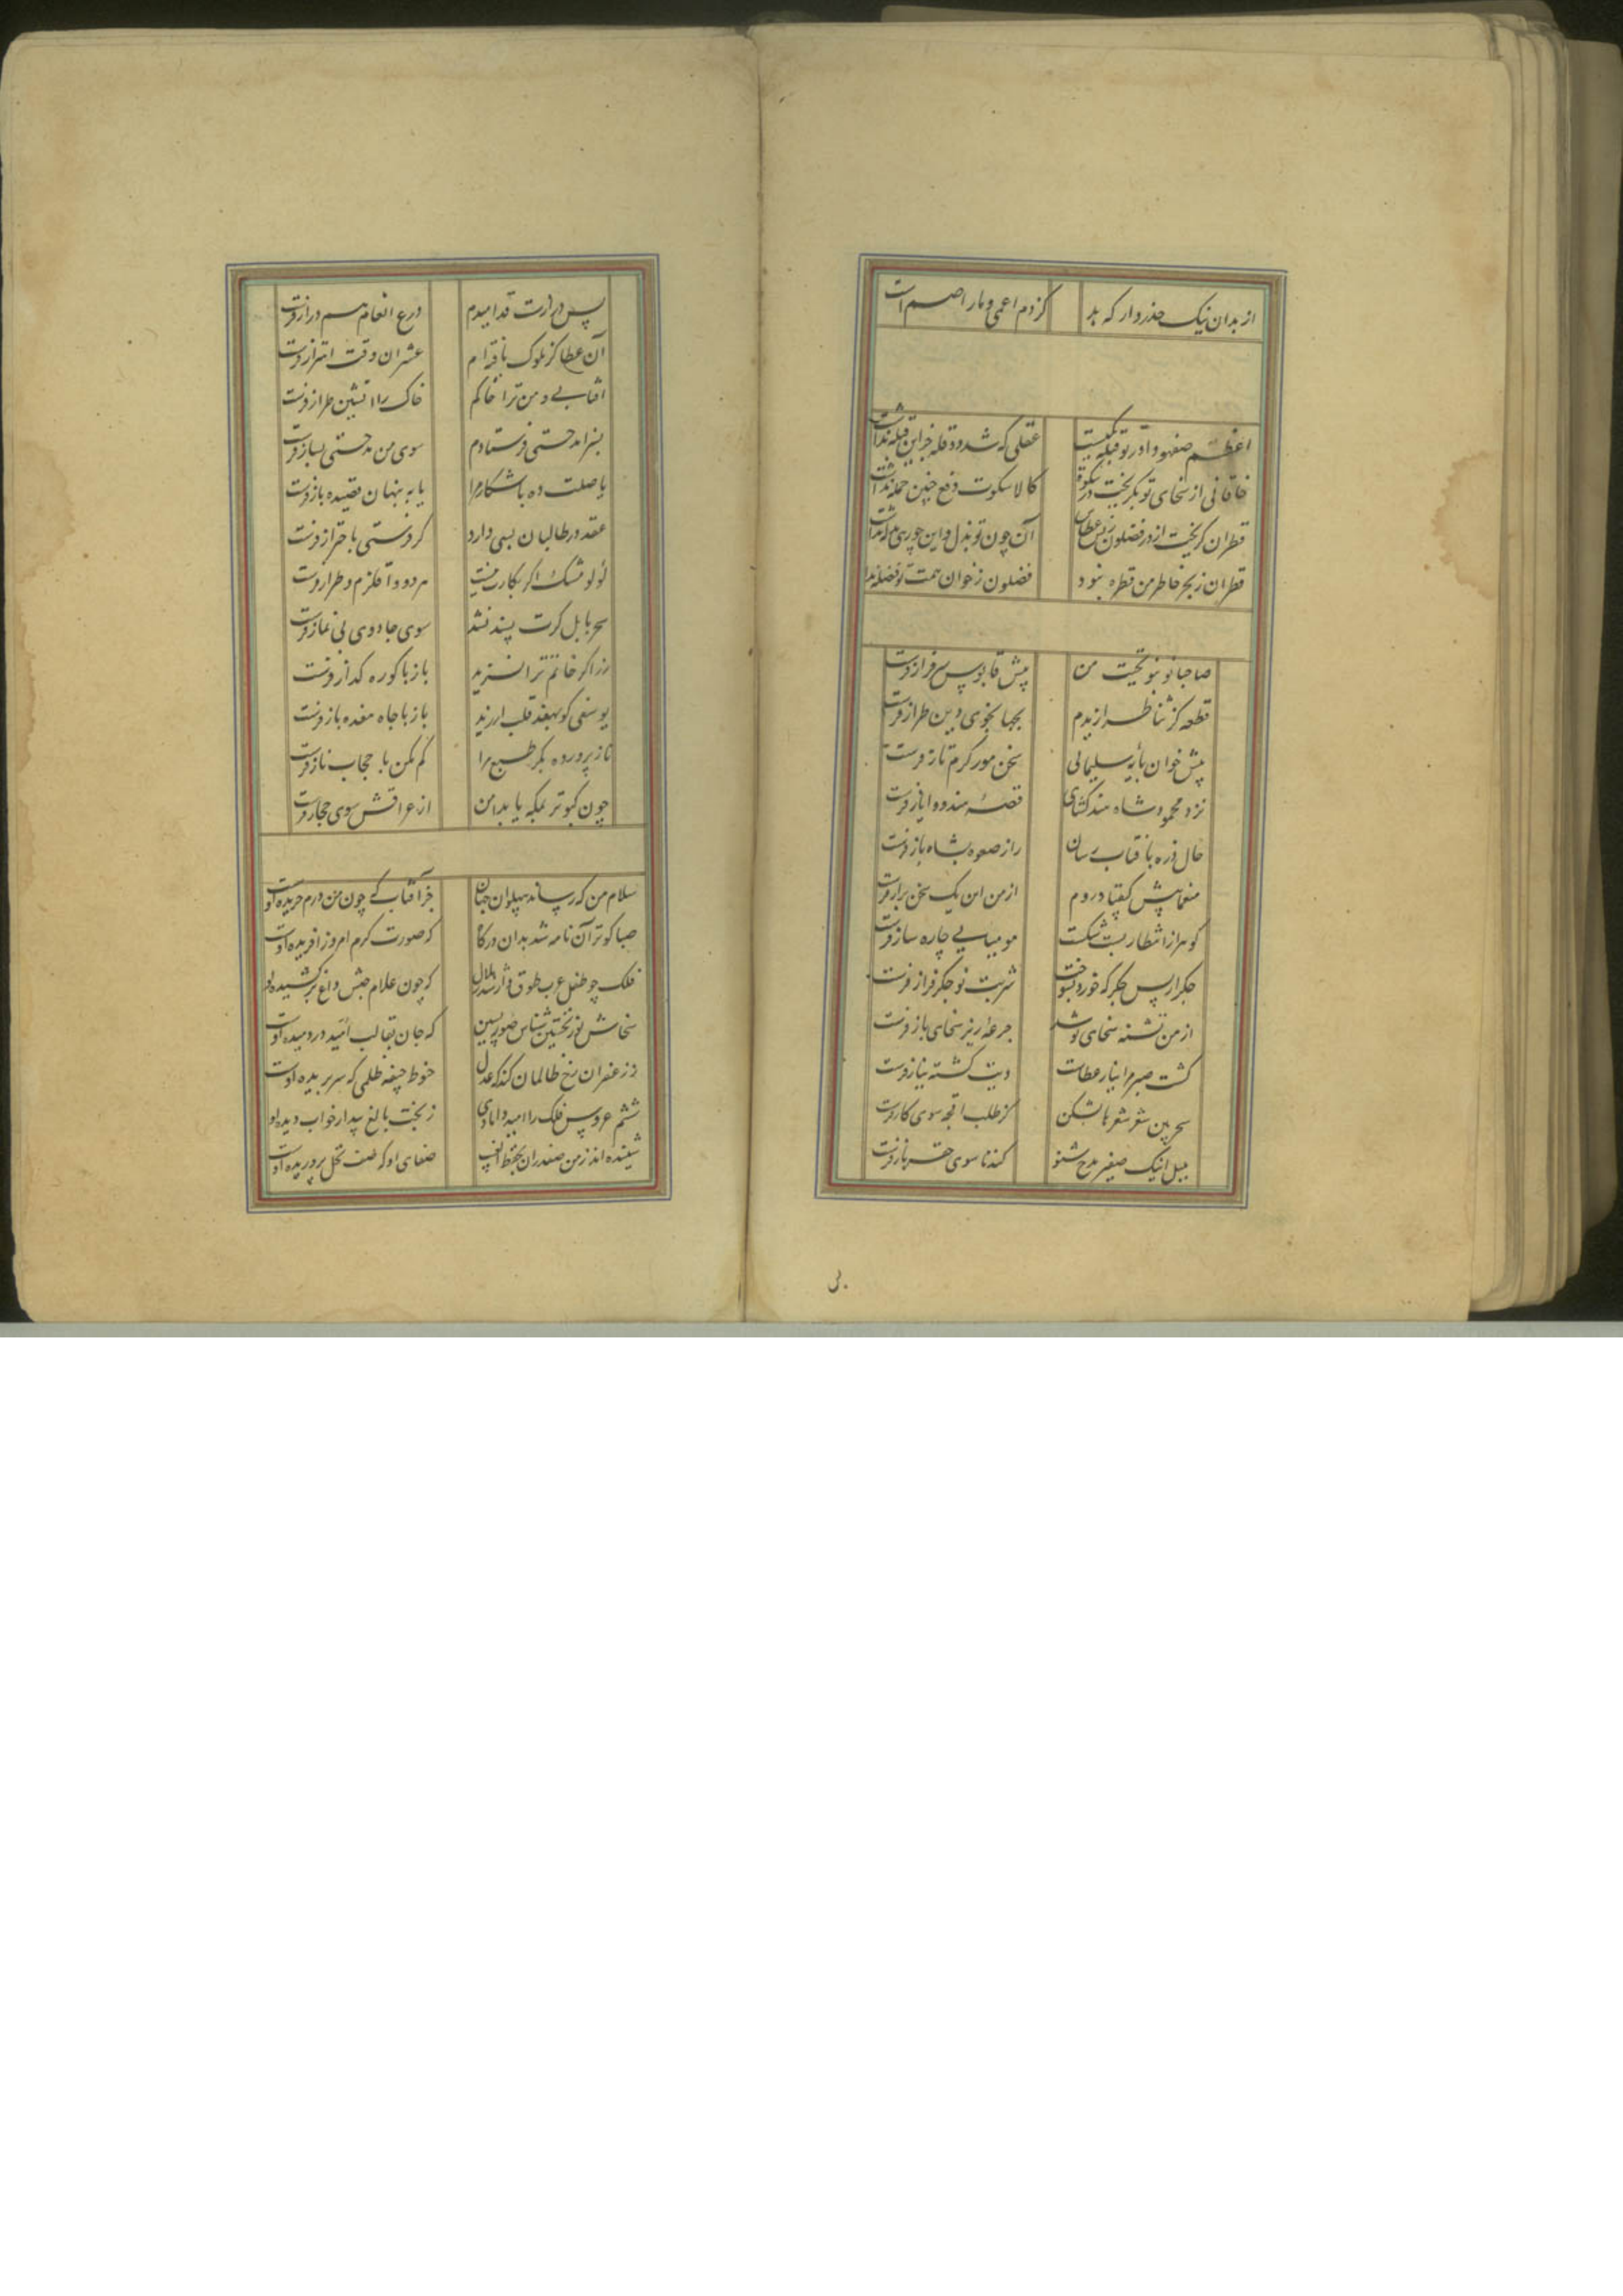 از بدان نیک حذر دار که بد کژدم اعمی و مار اصم است
اعظم صفهود آدر تو قبله عقلی که شد دو قله جز این قبله نداشت
خاقانی از سخای تو بگریخت در سکوت کالا سکوت دفع چنین حمله نداشت
قطران گریخت از در فضلون ز بس عطاش آن چون تو بذل و این چو رهی نداشت
قطران ز بحر خاطر من قطره نبود فضلون ز خوان همت تو فضله نداشت
صاحبا نو بنو تحیت من پیش قابوس سرفراز فرست
قطعه کز ثنا طرازیدم بجهانجوی دین طراز فرست
پیش خوان پایه سلیمانی سخن مور کرم تاز فرست
نزد محمود شاه هند گشای قصه هندوی ایاز فرست
حال ذره بآفتاب رسان راز صعوه بشاه باز فرست
منعما پیش کیقباد دوم از من این یک سخن براز فرست
گوهر از انتظار پشت شکست مومیایی چاره ساز فرست
جگر از بس جگر که خورد بسوخت شربت نو جگر فراز فرست
از من تشنه سخای تو شد جرعه ریز سخای باز فرست
کشت صبرم را نیاز عطات دیت کشته نیاز فرست
سحر بین شعر شعرها بشکن کز طلب اقچه سوی کار فرست
بلبل اینک صفیر مدح شنو گندنا سوی حقه باز فرست
پس درازست قد امیدم درع انعام هم دراز فرست
آن عطا کز ملوک یافته ام عشر آن وقت اهتزاز فرست
آفتابی و من ترا خاکم خاک را آتشین طراز فرست
بسزا مدحتی فرستادم سوی من مدحتی بساز فرست
یا صلت ده باشکار مرا یا به پنهان قصیده باز فرست
عقد در طالبان بسی دارد گر فرستی باحتراز فرست
لؤلؤ و مشک اگر بکارت نیست هر دو وا قلزم و طراز فرست
سحر بابل گرت پسند نشد سوی جادوی بی نماز فرست
زر اگر خاتم ترا نسزید باز با کوره گداز فرست
یوسفی کو بهفده قلب ارزید باز با چاه هفده باز فرست
ناز پرورده بکر طبع مرا گم مکن با حجاب ناز فرست
چون کبوتر بمکه یابد امن از عراقش سوی حجاز فرست
سلام من که رساند بپهلوان جهان جز آفتاب که چون من درم خریده اوست
صبا کبوتر آن نامه شد بدان درگاه که صورت کرم امروز آفریده اوست
فلک چو طفل عرب طوق دار شد ز هلال که چون غلام حبش داغ بر کشیده اوست
سخاش نور نخستین شناس صور پسین که جان بقالب امید در دمیده اوست
ز زعفران رخ ظالمان کند که عدل حنوط جیفه ظلمی که سر بریده اوست
ششم عروس فلک را امید دامادی ز بخت بالغ بیدار خواب دیده اوست
شنیده اند ز من صفدران بحفظ الغیب صفای او که صف نحل پروریده اوست